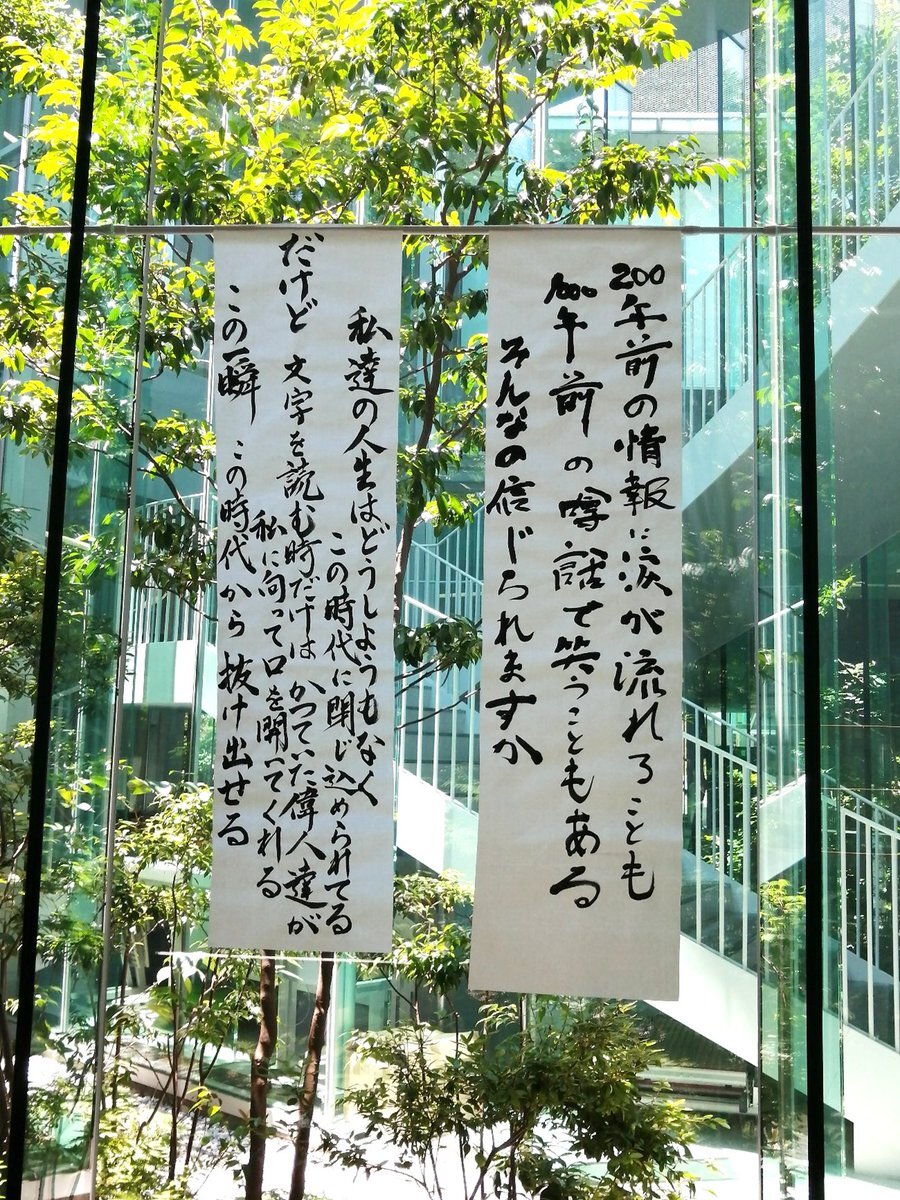 200年前の情報に涙が流れることも
1000年前の噂話で笑うこともある
そんなの信じられますか
私達の人生はどうしようもなく
この時代に閉じ込められてる
だけど 文字を読む時だけは かつていた偉人達が
私に向って口を開いてくれる
この一瞬 この時代から抜け出せる